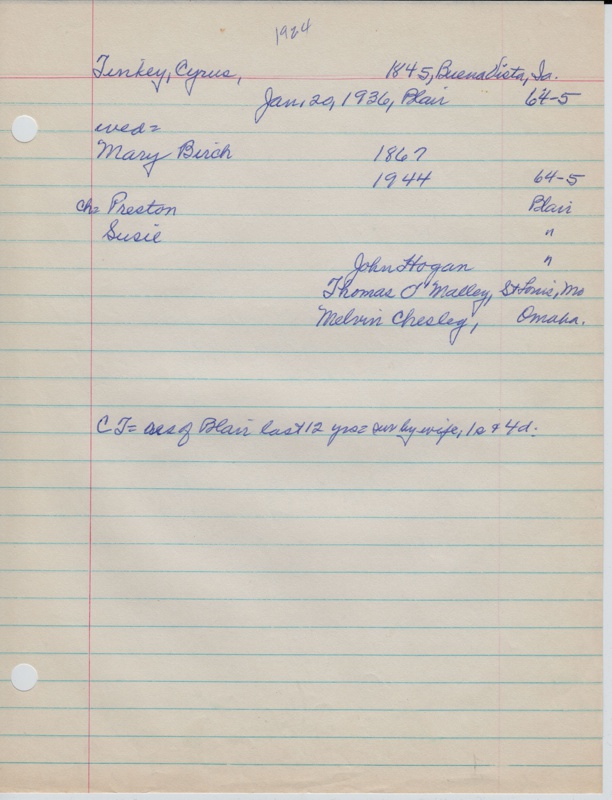 1924
Tenkey, Cyrus, 1845, Buena Vista, Ia.
Jan, 20, 1936, Blair 64-5
wed=
Mary Birch 1867
1944 64-5
ch= Preston Blair
Susie "
John Hogan "
Thomas O'Malley, St Louis, Mo
Melvin Chesley, Omaha.
CT= res of Blair last 12 yrs= sur by wife, 1s & 4d.